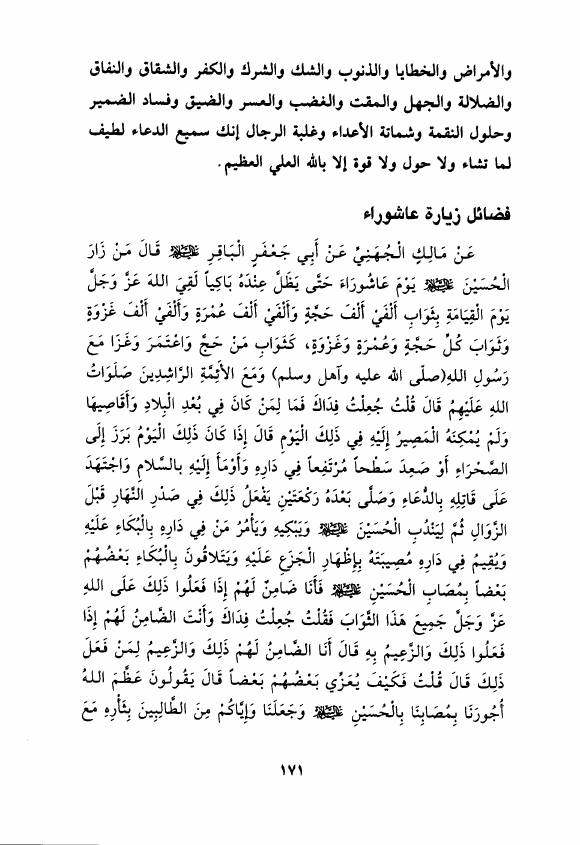 والأمراض والخطايا والذنوب والشك والشرك والكفر والشقاق والنفاق
والضلالة والجهل والمقت والغضب والعسر والضيق وفساد الضمير
وحلول النقمة وشماتة الأعداء وغلبة الرجال إنك سميع الدعاء لطيف
لما تشاء ولا حول ولا قوة إلا بالله العلي العظيم.
فضائل زيارة عاشوراء
عَنْ مَالِكٍ الْجُهَنِيِّ عَنْ أَبِي جَعْفَرٍ الْبَاقِرِ عليه السلام قَالَ مَنْ زَارَ
الْحُسَيْنَ عليه السلام يَوْمَ عَاشُورَاءَ حَتَّى يَظَلَّ عِنْدَهُ بَاكِياً لَقِيَ اللهَ عَزَّ وَجَلَّ
يَوْمَ الْقِيَامَةِ بِثَوَابِ أَلْفَيْ أَلْفِ حَجَّةٍ وَأَلْفَيْ أَلْفِ عُمْرَةٍ وَأَلْفَيْ أَلْفِ غَزْوَةٍ
وَثَوَابُ كُلِّ حَجَّةٍ وَعُمْرَةٍ وَغَزْوَةٍ، كَثَوَابِ مَنْ حَجَّ وَاعْتَمَرَ وَغَزَا مَعَ
رَسُولِ اللهِ(صلّى الله عليه وآهل وسلم) وَمَعَ الأَئِمَّةِ الرَّاشِدِينَ صَلَوَاتُ
اللهِ عَلَيْهِمْ قَالَ قُلْتُ جُعِلْتُ فِدَاكَ فَمَا لِمَنْ كَانَ فِي بُعْدِ الْبِلَادِ وَأَقَاصِيهَا
وَلَمْ يُمْكِنْهُ الْمَصِيرُ إِلَيْهِ فِي ذَلِكَ الْيَوْمِ قَالَ إِذَا كَانَ ذَلِكَ الْيَوْمُ بَرَزَ إِلَى
الصَّحْرَاءِ أَوْ صَعِدَ سَطْحاً مُرْتَفِعاً فِي دَارِهِ وَأَوْمَأَ إِلَيْهِ بِالسَّلامِ وَاجْتَهَدَ
عَلَى قَاتِلِهِ بِالدُّعَاءِ وَصَلَّى بَعْدَهُ رَكْعَتَيْنِ يَفْعَلُ ذَلِكَ فِي صَدْرِ النَّهَارِ قَبْلَ
الزَّوَالِ ثُمَّ لِيَنْدُبِ الْحُسَيْنَ عليه السلام وَيَبْكِيهِ وَيَأْمُرُ مَنْ فِي دَارِهِ بِالْبُكَاءِ عَلَيْهِ
وَيُقِيمُ فِي دَارِهِ مُصِيبَتَهُ بِإِظْهَارِ الْجَزَعِ عَلَيْهِ وَيَتَلاقَوْنَ بِالْبُكَاءِ بَعْضُهُمْ
بَعْضاً بِمُصَابِ الْحُسَيْنِ عليه السلام فَأَنَا ضَامِنٌ لَهُمْ إِذَا فَعَلُوا ذَلِكَ عَلَى اللهِ
عَزَّ وَجَلَّ جَمِيعَ هَذَا الثَّوَابِ فَقُلْتُ جُعِلْتُ فِدَاكَ وَأَنْتَ الضَّامِنُ لَهُمْ إِذَا
فَعَلُوا ذَلِكَ وَالزَّعِيمُ بِهِ قَالَ أَنَا الضَّامِنُ لَهُمْ ذَلِكَ وَالزَّعِيمُ لِمَنْ فَعَلَ
ذَلِكَ قَالَ قُلْتُ فَكَيْفَ يُعَزِّي بَعْضُهُمْ بَعْضاً قَالَ يَقُولُونَ عَظَّمَ اللهُ
أُجُورَنَا بِمُصَابِنَا بِالْحُسَيْنِ عليه السلام وَجَعَلَنَا وَإِيَّاكُمْ مِنَ الطَّالِبِينَ بِثَأْرِهِ مَعَ
١٧١